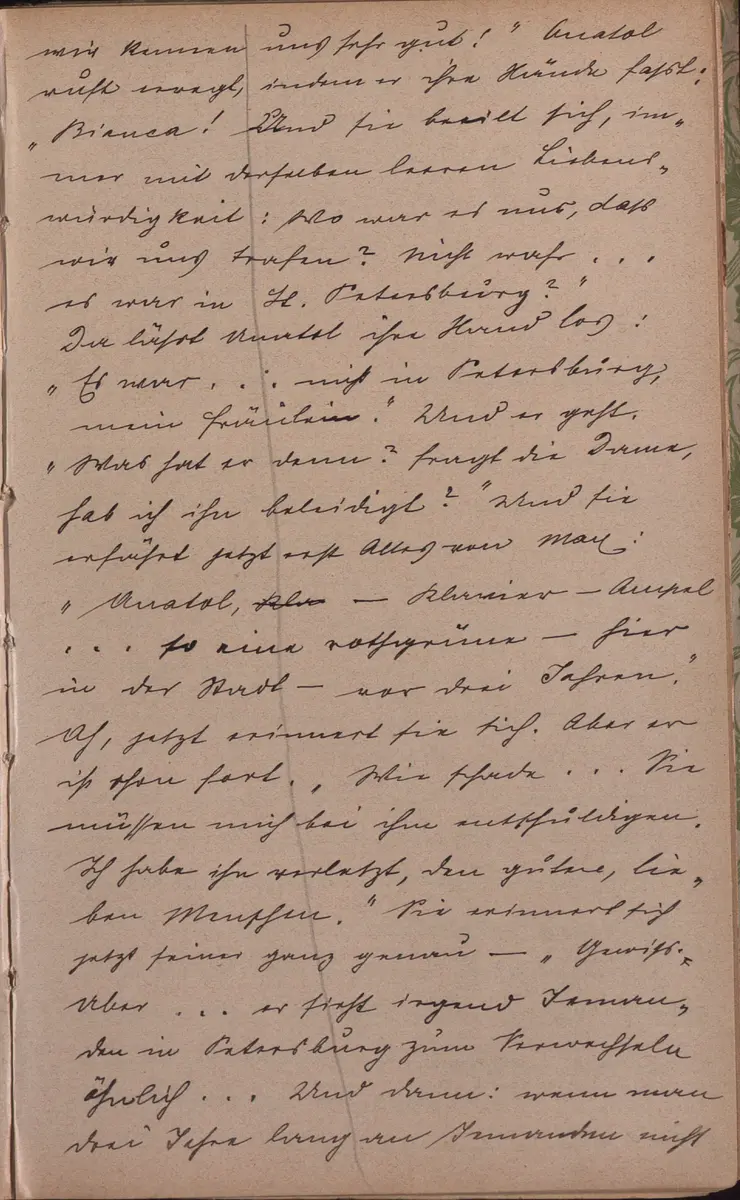 wir kennen uns sehr gut!" Anatol
ruft erregt, indem er ihre Hände fasst:
„Bianca! Und sie beeilt sich, im„
mer mit derselben leeren Liebens„
würdigkeit: Wo war es nur, dass
wir uns trafen? Nicht wahr ...
es war in St. Petersburg?"
Da lässt Anatol ihre Hand los:
„Es war ... nicht in Petersburg,
mein Fräulein." Und er geht.
„Was hat er denn? fragt die Dame,
hab ich ihn beleidigt?" Und sie
erfährt jetzt erst Alles von Max:
„Anatol, Kla — Klavier — Ampel
... so eine rothgrüne — hier
in der Stadt — vor drei Jahren."
Ah, jetzt erinnert sie sich. Aber er
ist schon fort. „Wie schade ... Sie
müssen mich bei ihm entschuldigen.
Ich habe ihn verletzt, den guten, lie„
ben Menschen." Sie erinnert sich
jetzt seiner ganz genau — „Gewiss.
Aber ... er sieht irgend Jeman„
den in Petersburg zum Verwechseln
ähnlich ... Und dann: wenn man
drei Jahre lang an Jemanden nicht